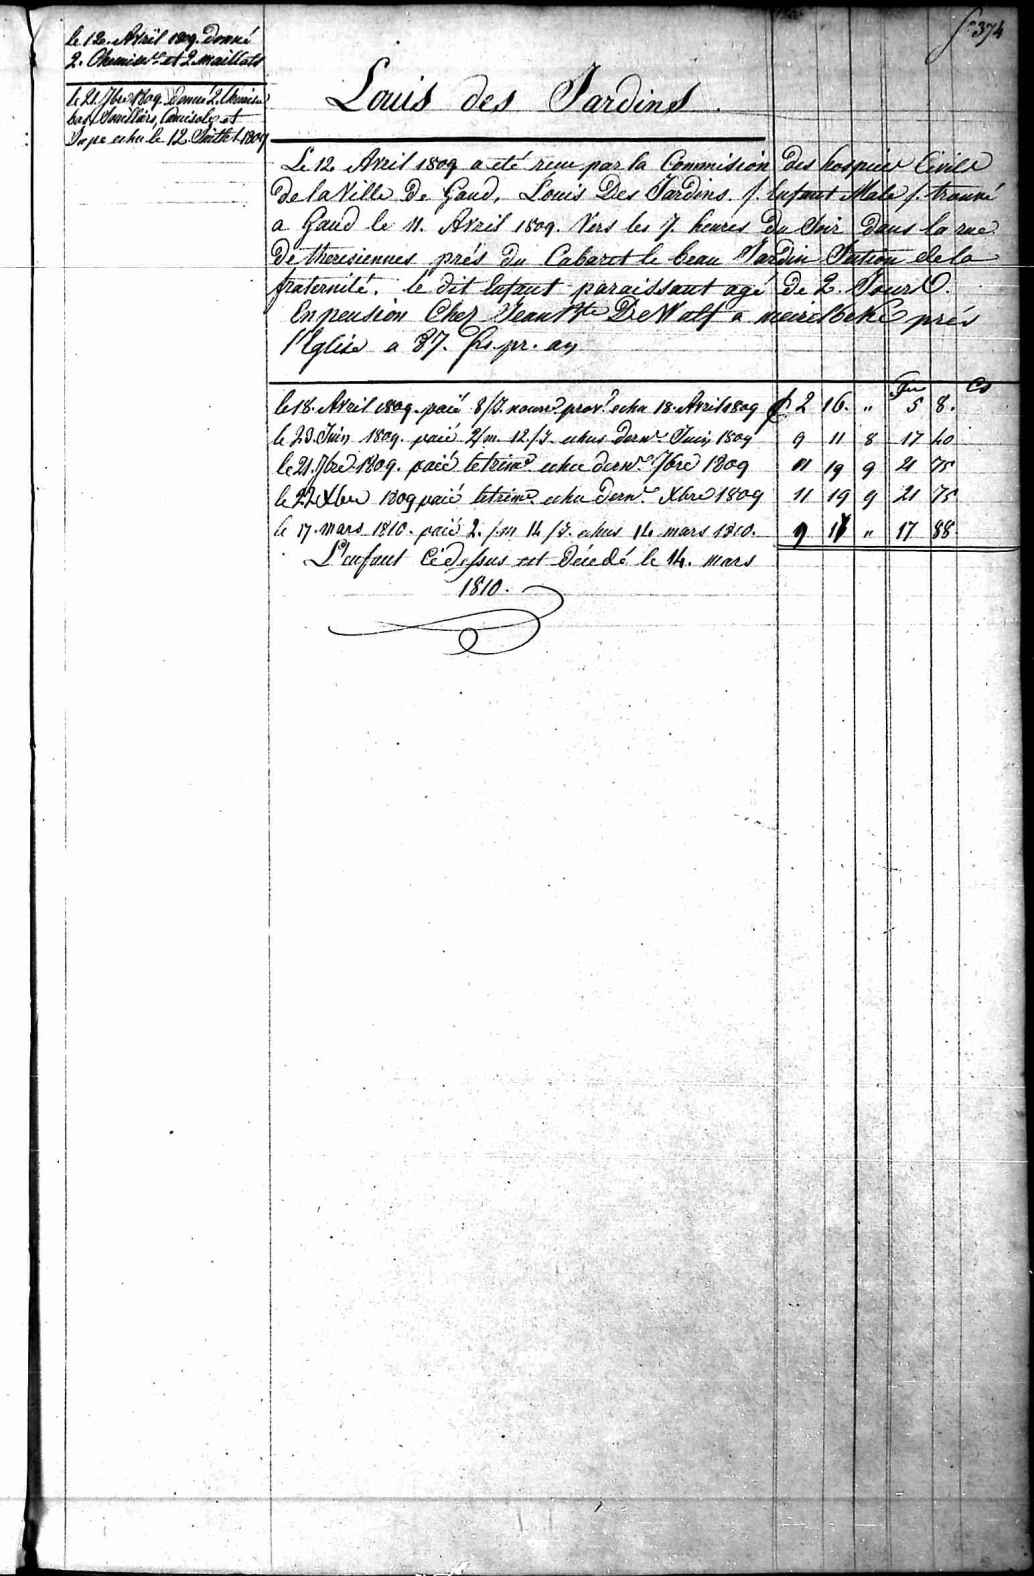 fo 374
le 12. Avril 1809. donné
2. Chemises et 2 maillots
le 21. 7bre 1809. donné 2. Chemise
bas, Souilliers, Camisole et
Jupe echu le 12 Juillet 1809
Louis des Jardins.
Le 12 Avril 1809 a été recu par la Commision des hospice Civile
de la Ville de Gand, Louis Des Jardins. f. Enfant Male f. trouvé
a Gand le 11. Avril 1809. Vers les 7. heures du Soir dans la rue
de theresiennes prés du Cabaret le beau Jardin Section de la
fraternité. le dit Enfant paraissant agé de 2. Jours.
En pension Chez Jean Bte De Wulf a meirelbeke prés
l'Eglise a 87. frs. pr. an
frs Cs
le 18. Avril 1809. paié 8/J. nourre provre echu 18. Avril 1809 £ 2 16. " 5 8.
le 23. Juin 1809. paié 2/m. 12/J. echus dernr Juin 1809 9 11 8 17 40
le 21. 7bre 1809. paié le trime echu dernr 7bre 1809 11 19 9 21 75
le 22 Xbre 1809 paié le trime echu dernr Xbre 1809 11 19 9 21 75
le 17. mars 1810. paié 2./m 14/J. echus 14 mars 1810. 9 17 " 17 88.
L'enfant Cidessus est décédé le 14. mars
1810.